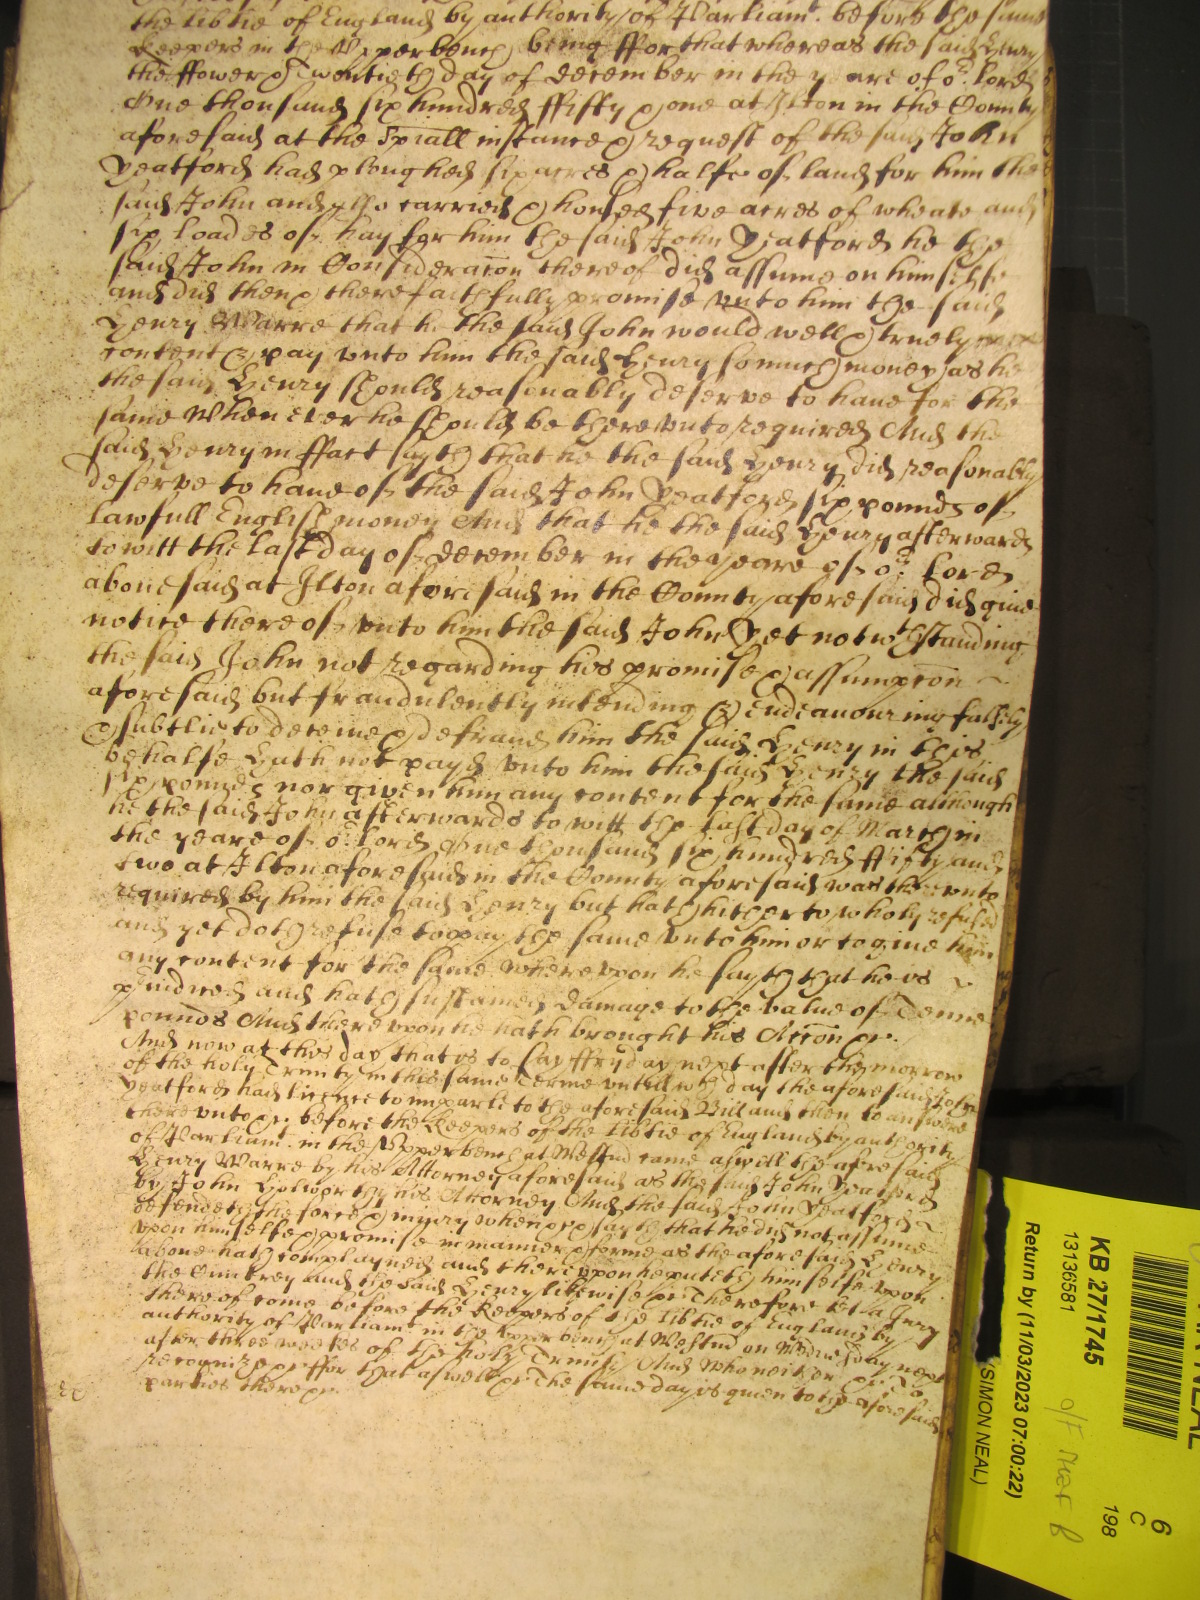 the lib'tie of England by authority of Parliamt. before the same
Keepers in the Vpper bench being ffor that whereas the said Henry
the ffower & Twentieth day of december in the yeare of or. lord
One thousand six hundred ffifty & one at Ilton in the County
aforesaid at the Sp'iall instance & request of the said John
Yeatford had ploughed six acres & halfe of land for him the
said John and also carried & housed five acres of wheate and
six loades of hay for him the said John Yeatford he the
said John in Consideracon thereof did assume on himselfe
and did then & there faithfully promise vnto him the said
Henry Warre that he the said John would well & truely
content & pay vnto him the said Henry so much money as he
the said Henry should reasonably deserve to haue for the
same When ever he should be therevnto required And the
said Henry in ffact sayth that he the said Henry did reasonably
deserve to haue of the said John Yeatford six pounds of
lawfull English money And that he the said Henry afterwards
to witt the last day of december in the yeare of or. lord
abouesaid at Ilton aforesaid in the County aforesaid did giue
notice thereof vnto him the said John Yet notwthstanding
the said John not regarding his promise & assumpcon
aforesaid but fraudulently intending & endeauouring falsely
& subtlie to deceiue & defraud him the said Henry in this
behalfe Hath not payd vnto him the said Henry the said
six pounds nor given him any content for the same although
he the said John afterwards to witt the last day of March in
the yeare of or. lord One thousand six hundred ffifty and
two at Ilton aforesaid in the County aforesaid was therevnto
required by him the said Henry but hath hitherto wholy refused
and yet doth refuse to pay the same vnto him or to giue him
any content for the same wherevpon he sayth that he is
p'iudiced and hath sustained damage to the value of Tenne
pounds And therevpon he hath brought his Accon &c.
And now at this day that is to say ffryday next after the morrow
of the holy Trinity in this same Terme vntill wch day the aforesaid John
Yeatford had licence to imparle to the aforesaid Bill and then to answere
therevnto &c. before the Keepers of the lib'tie of England by authority
of Parliamt. in the Vpper bench at Westmr came aswell the aforesaid
Henry Warre by his Attorney aforesaid as the said John Yeatford
by John his Attorney And the said John Yeatford
defendeth the force & iniury when &c & sayth that he did not assume
vpon himselfe & promise in manner & forme as the aforesaid Henry
aboue hath complayned and therevpon he putteth himselfe vpon
the Cuntrey and the said Henry likewise &c. Therefore let a Jury
thereof come before the Keepers of the lib'tie of England by
authority of Parliamt in the vpper bench at Westmr on Wednesday next
after three weekes of the holy Trinity And who neither &c. To
recognize &c ffor that aswell &c. The same day is giuen to the aforesaid
parties there &c.
NEAL
KB 27/1745
13136581
Return by (11/03/2023 07:00:22)
(SIMON NEAL)
6
C
198